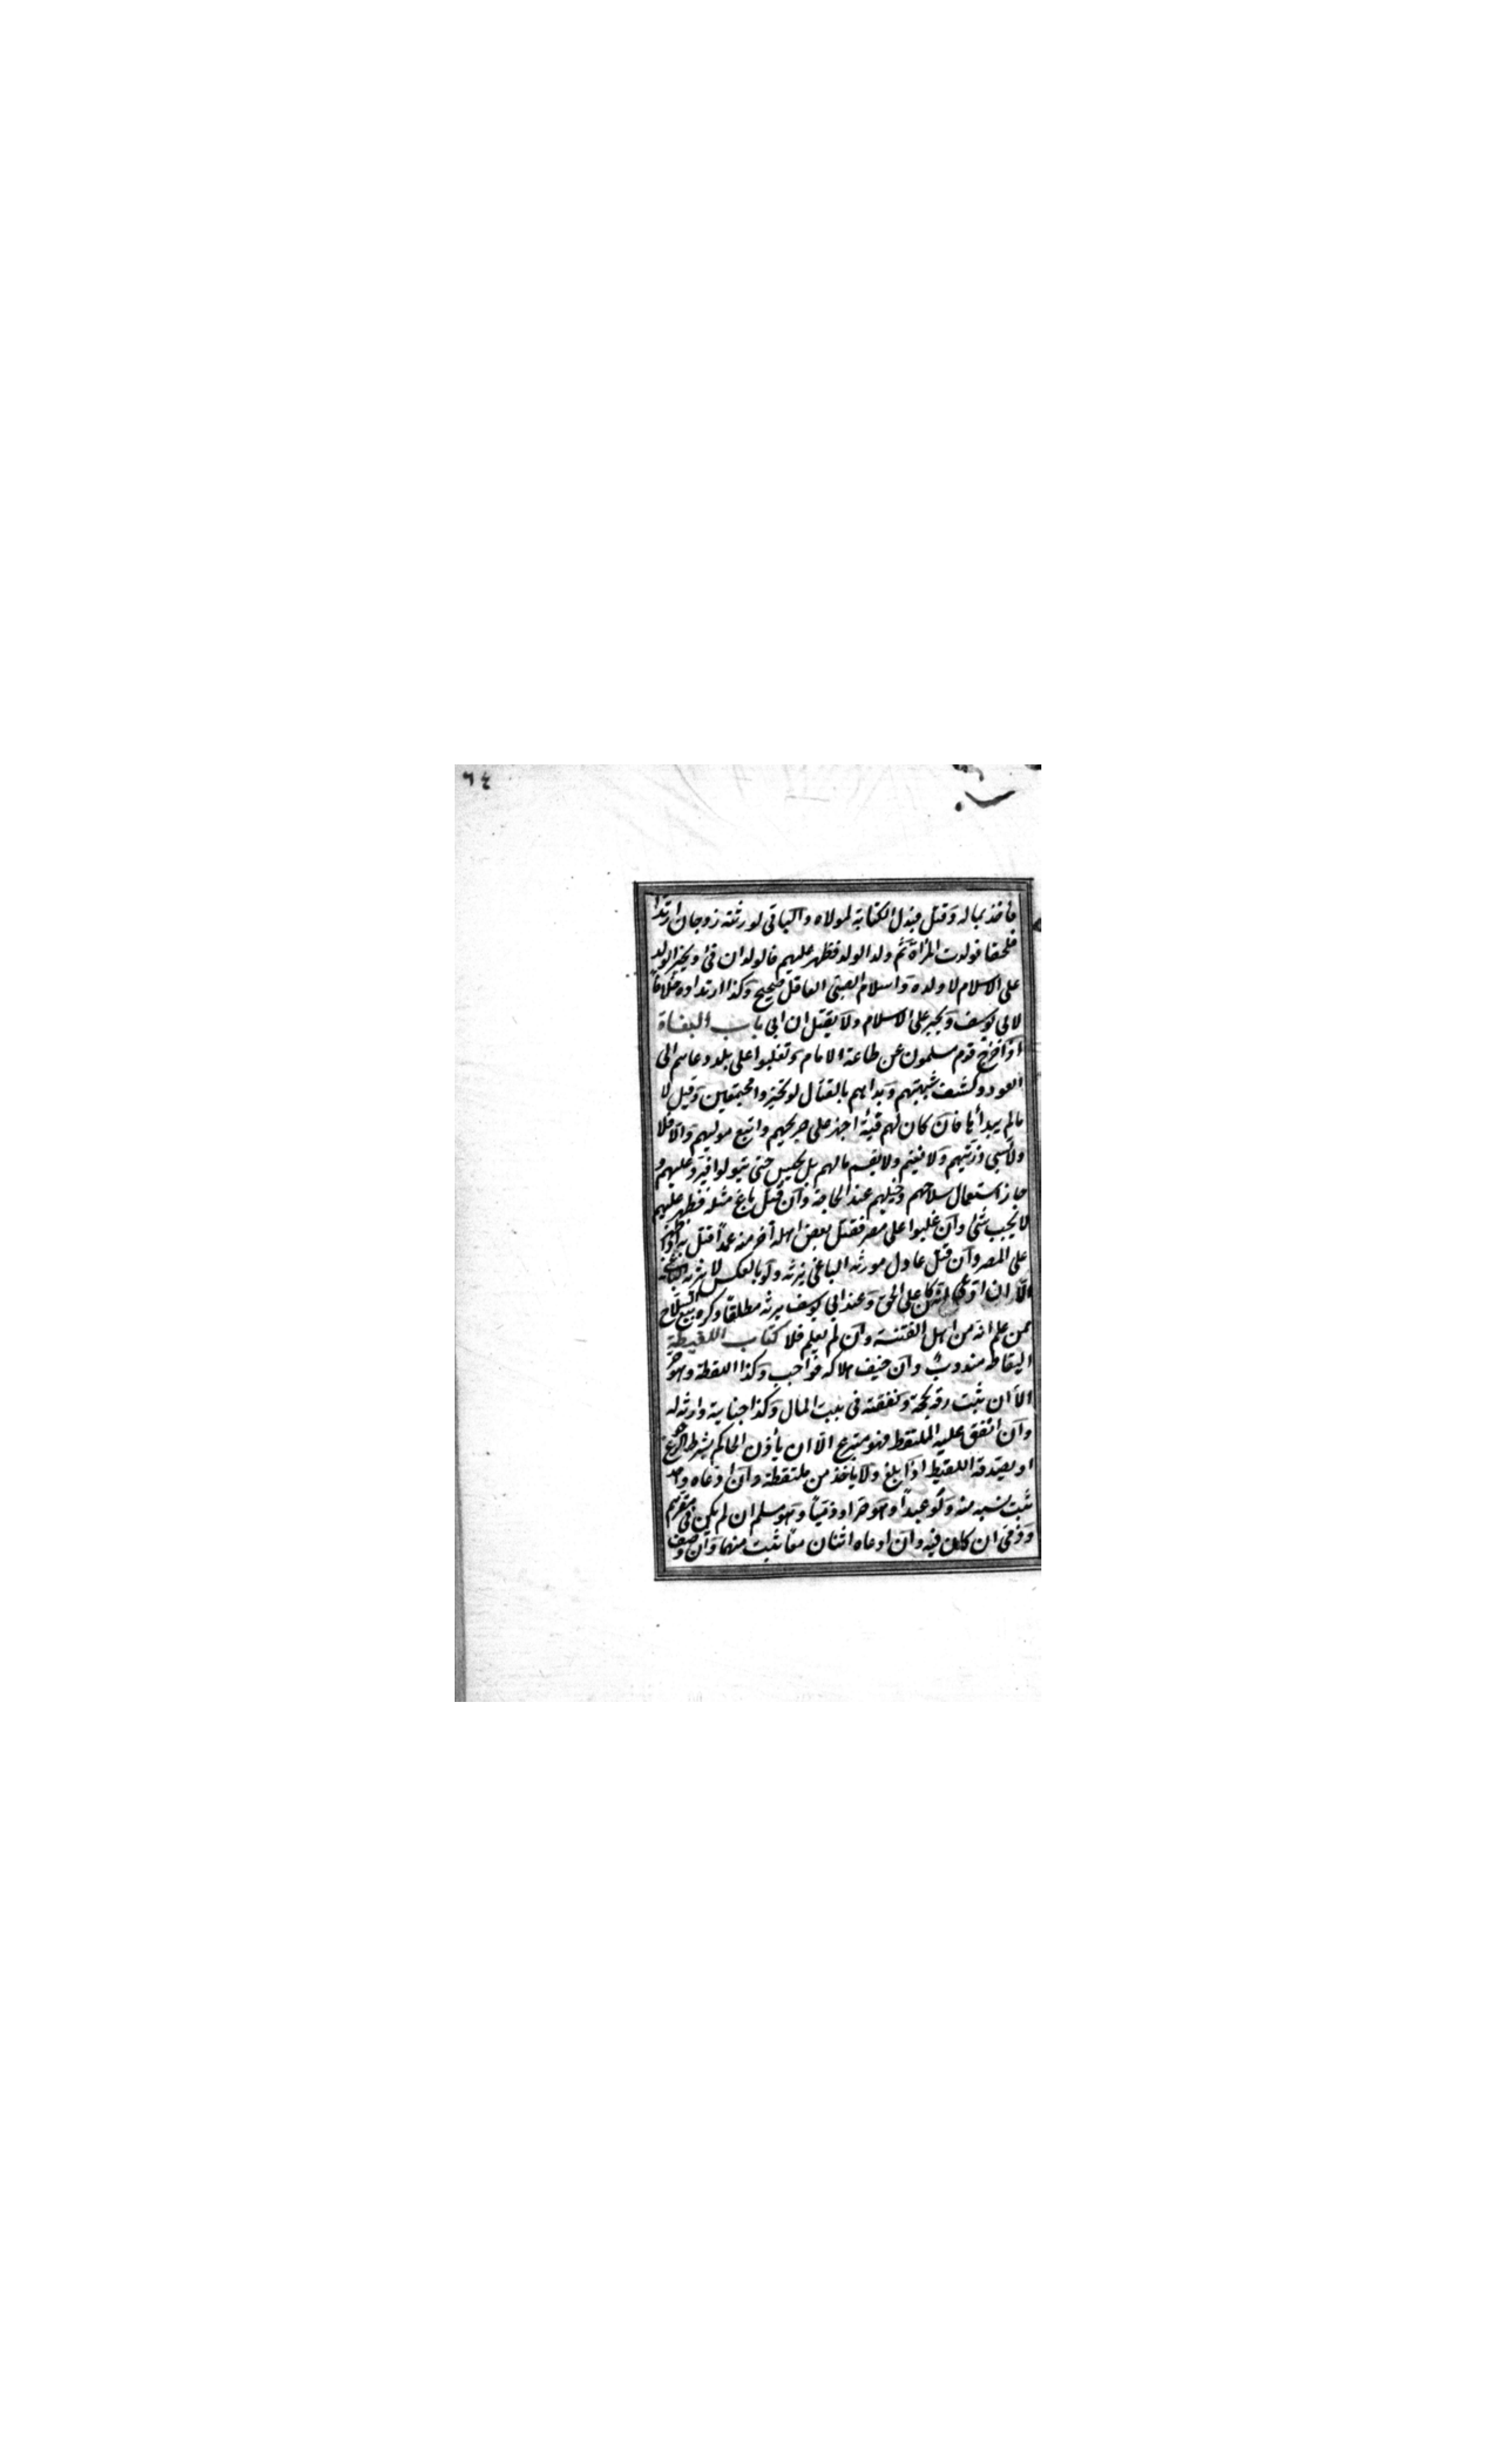 ٦٤
فأخذ بماله وقتل فبدل الكتابة لمولاه والباقي لورثته زوجان ارتدا
فلحقا فولدت المرأة ثم ولد الولد فظهر عليهم فالولدان فئ ويجبر الولد
على الاسلام لا ولده واسلام الصبي العاقل صحيح وكذا ارتداده خلافا
لابي يوسف ويجبر على الاسلام ولا يقتل ان ابى باب البغاة
اذا خرج قوم مسلمون عن طاعة الامام وتغلبوا على بلد دعاهم الى
العود وكشف شبهتهم وبدأهم بالقتال لو تحيزوا مجتمعين وقيل لا
مالم يبدأوا فان كان لهم فئة اجهز على جريحهم واتبع موليهم والا فلا
ولا تسبى ذريتهم ولا نغنم ولا يقسم مالهم بل يحبس حتى يتوبوا فيرد عليهم و
جاز استعمال سلاحهم وخيلهم عند الحاجة وان قتل باغ مثله فظهر عليهم
لا يجب شئ وان غلبوا على مصر فقتل بعض اهله آخر منه عمدا قتل به اذا ظهر
على المصر وان قتل عادل مورثه الباغي يرثه ولو بالعكس لا يرثه الباغي
الا ان ادعى انه كان على الحق وعند ابي يوسف لا يرثه مطلقا وكره بيع السلاح
ممن علم انه من اهل الفتنة وان لم يعلم فلا كتاب اللقيط
التقاطه مندوب وان خيف هلاكه فواجب وكذا اللقطة وهو حر
الا ان يثبت رقه بحجة ونفقته في بيت المال وكذا جنايته وارثه له
وان انفق عليه الملتقط فهو متبرع الا ان يأذن الحاكم بشرط الرجوع
او يصدقه اللقيط اذا بلغ ولا يأخذ من ملتقطه وان ادعاه واحد
ثبت نسبه منه ولو عبدا وهو حر او ذميا وهو مسلم ان لم يكن في مقرهم
وذمي ان كان فيه وان ادعاه اثنان معا ثبت منهما وان وصف